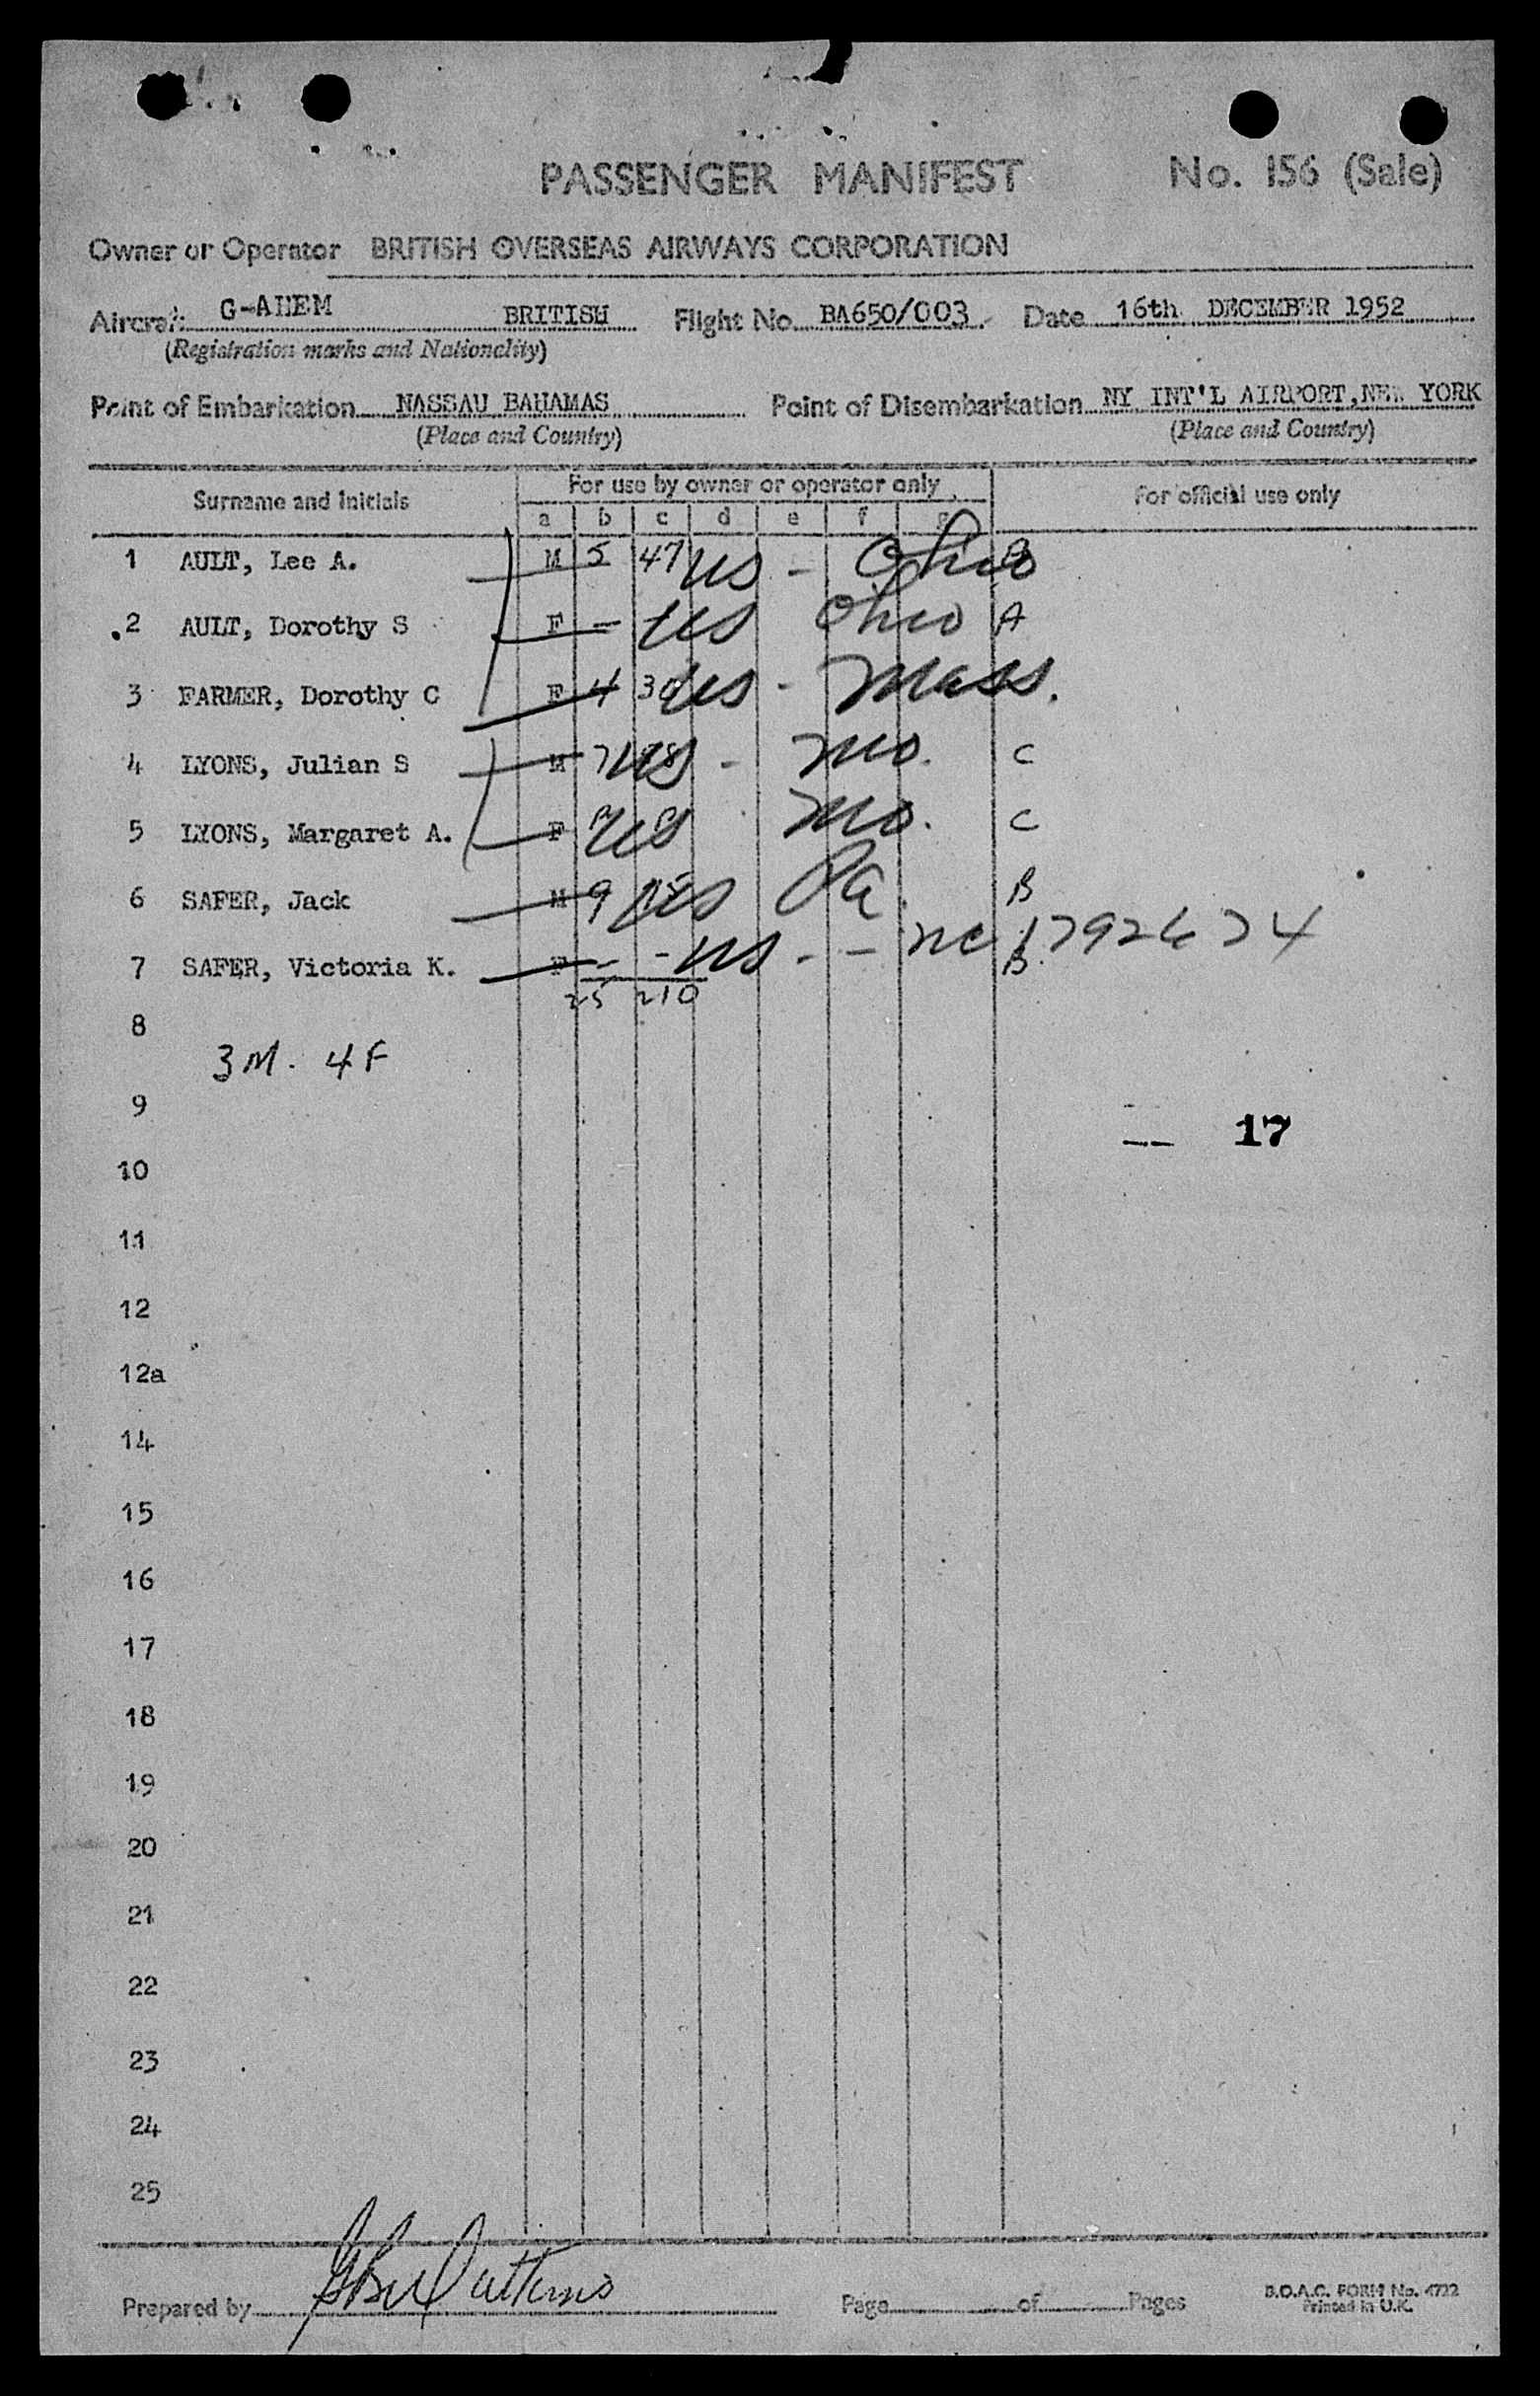 PASSENGER MANIFEST No. 156 (Sale)
Owner or Operator BRITISH OVERSEAS AIRWAYS CORPORATION
Aircraft G-AHEM BRITISH Flight No. BA650/003. Date 16th DECEMBER 1952
(Registration marks and Nationality)
Point of Embarkation NASSAU BAHAMAS Point of Disembarkation NY INT'L AIRPORT, NEW YORK
(Place and Country) (Place and Country)
Surname and Initials For use by owner or operator only For official use only
a b c d e f g
1 AULT, Lee A. M 5 47 US - Ohio B
2 AULT, Dorothy S F - US Ohio A
3 FARMER, Dorothy C F 4 30 US - Mass.
4 LYONS, Julian S M 7 US - Mo. C
5 LYONS, Margaret A. F US Mo. C
6 SAFER, Jack M 9 US Pa. B
7 SAFER, Victoria K. F - - US - - NC 1792674 B
25 210
8
3M. 4F
9
-- 17
10
11
12
12a
14
15
16
17
18
19
20
21
22
23
24
25
Prepared by Page of Pages
B.O.A.C. FORM No. 4722
Printed in U.K.